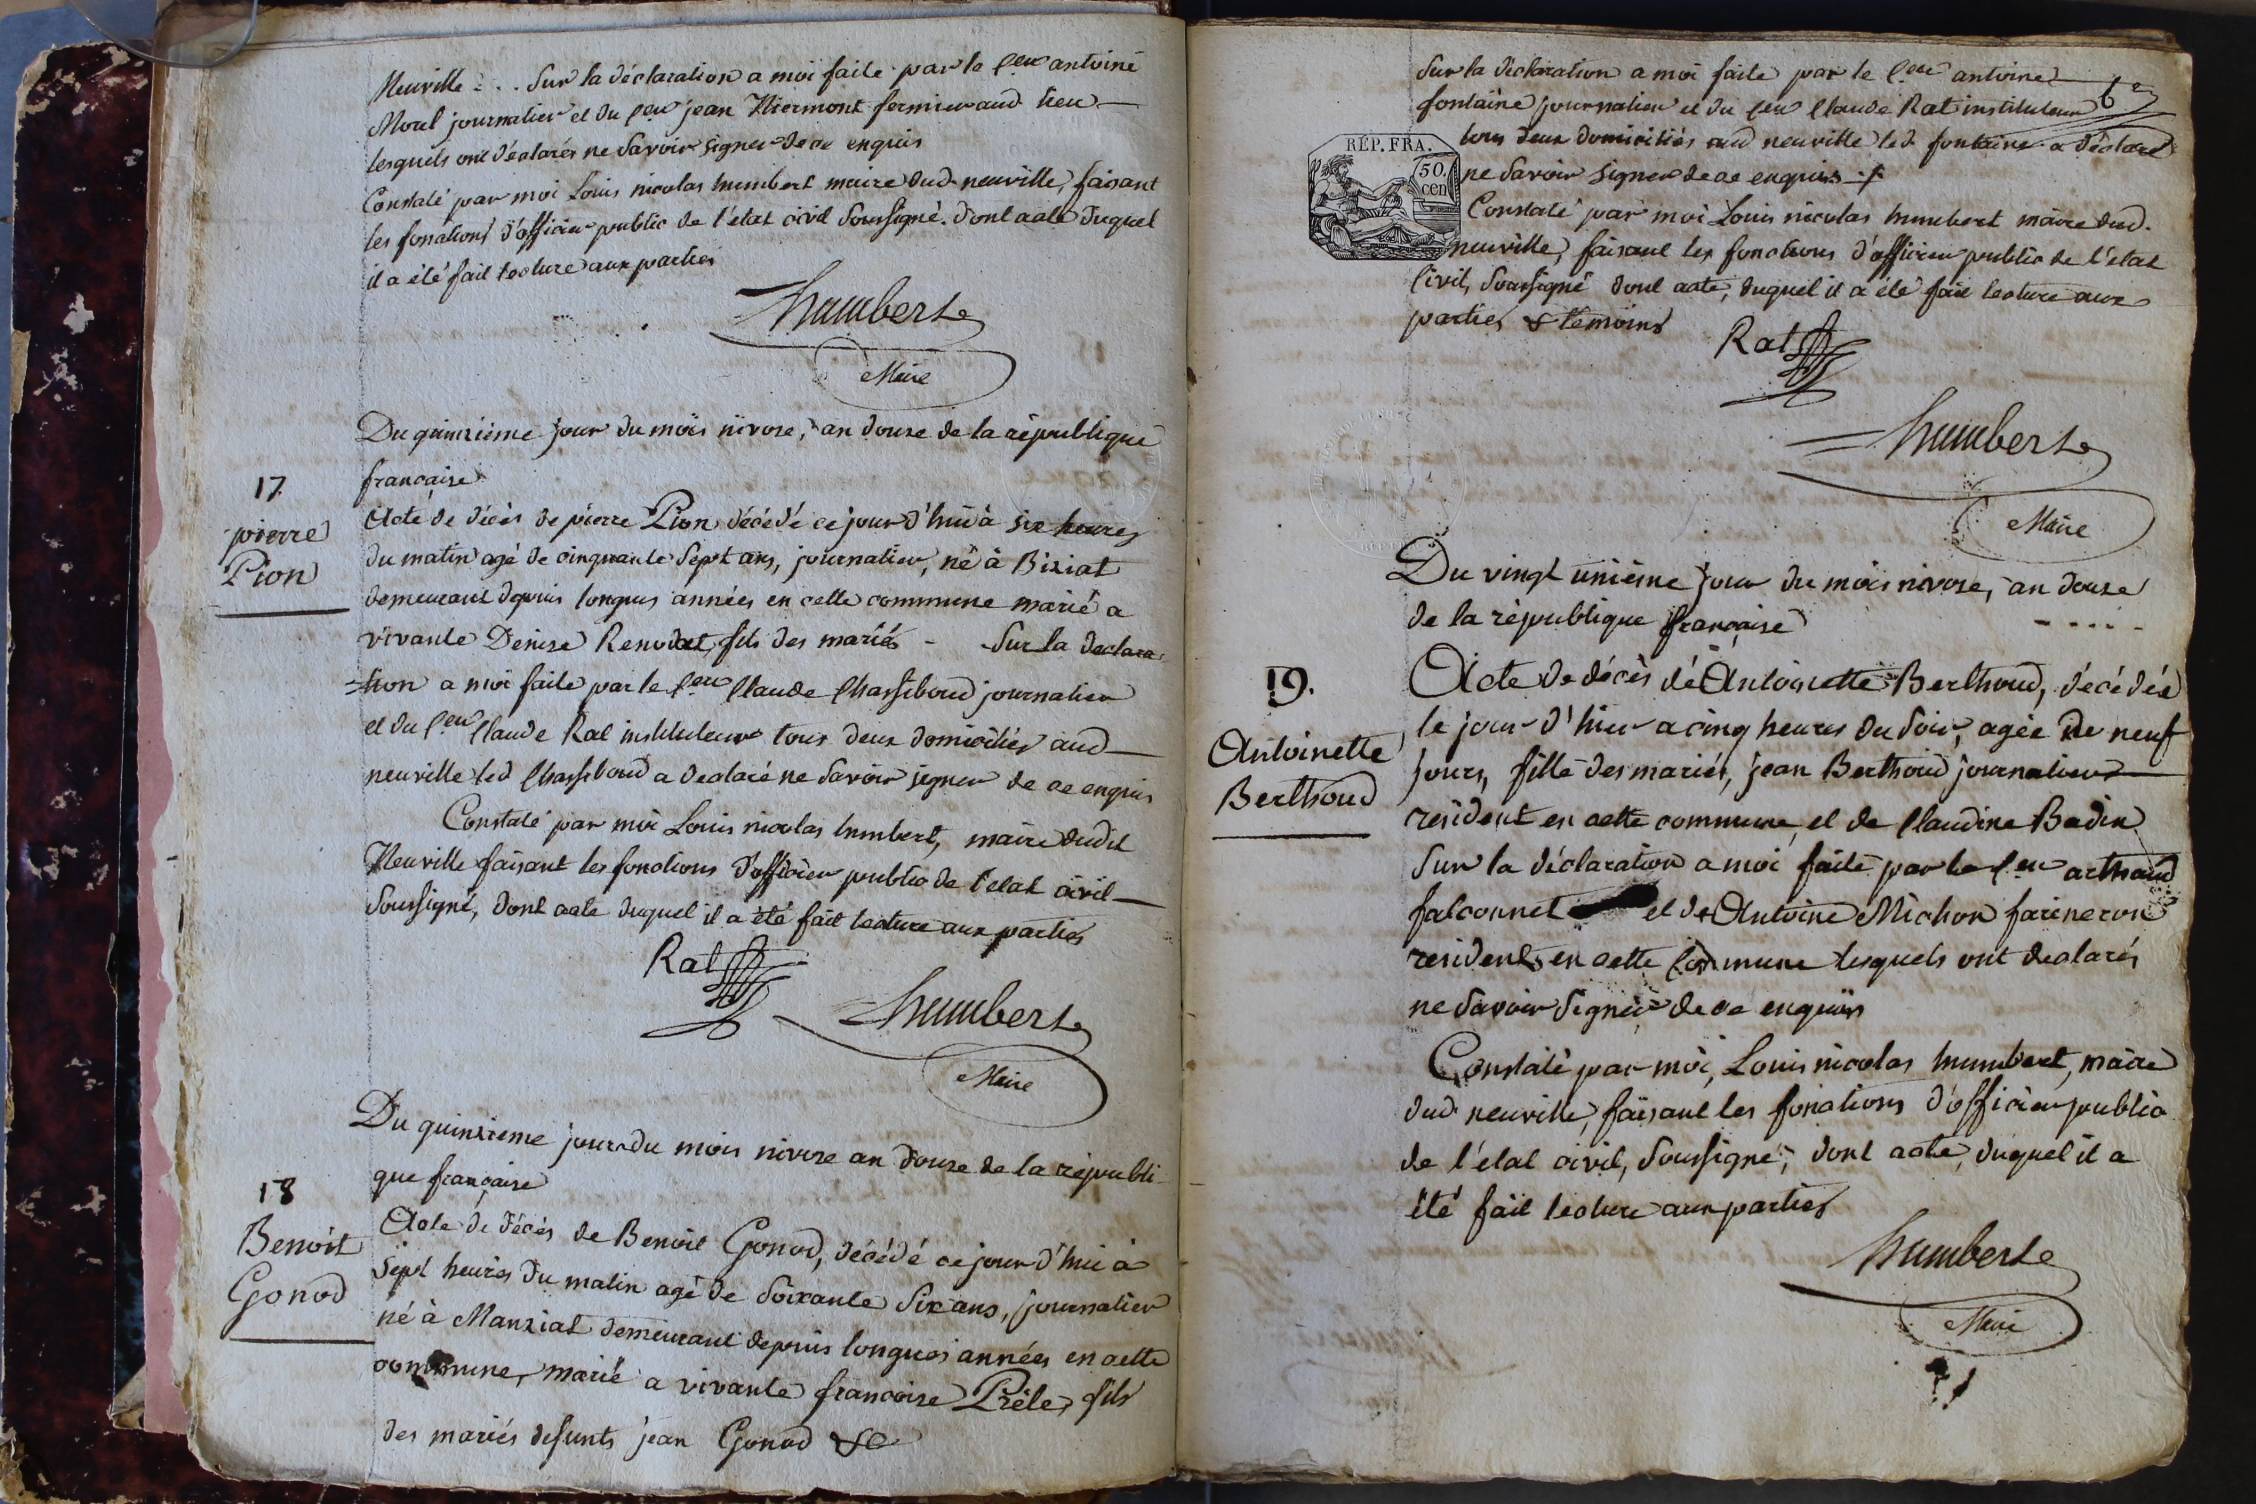 Neuville = . . Sur la déclaration a moi faite par le Ceen antoine
Morel journalier et du Ceen jean Niermont fermier aud lieu —
lesquels ont déclarés ne Savoir signer de ce enquis
Constaté par moi Louis nicolas humbert maire dud neuville, faisant
les fonctions d'officier public de l'état civil Soussigné. dont acte duquel
il a été fait lecture aux parties
humbert
Maire
Du quinzième jour du mois nivose, an douze de la république
française
17.
pierre
Pion
Acte de décès de pierre Pion, décédé ce jour d'hui à six heures
du matin agé de cinquante Sept ans, journalier, né à Biziat
demeurant depuis longues années en cette commune marié a
vivante Denise Renodat, fils des mariés - Sur la declara-
=tion a moi faite par le Ceen Claude Chassiboud journalier
et du Ceen Claude Rat instituteur tous deux domiciliés aud —
neuville led Chassiboud a declaré ne Savoir signer de ce enquis
Constaté par moi Louis nicolas humbert, maire dudit
Neuville faisant les fonctions d'officier public de l'etat civil —
Soussigné, dont acte duquel il a été fait lecture aux parties
Rat
humbert
Maire
Du quinzieme jour du mois nivose an douze de la républi-
que française
18
Benoit
Gonod
Acte de décès de Benoit Gonod, décédé ce jour d'hui à
Sept heures du matin agé de Soixante Six ans, journalier
né à Manziat demeurant depuis longues années en cette
commune, marié a vivante francoise Prêle, fils
des mariés defunts jean Gonod &c
6e
Sur la déclaration a moi faite par le Ceen antoine
fontaine journalier et du Ceen Claude Rat instituteur
tous deux domiciliés aud neuville led fontaine a déclaré
ne Savoir Signer de ce enquis
RÉP. FRA.
50.
cen
Constaté par moi Louis nicolas humbert maire dud.
neuville, faisant les fonctions d'officier public de l'état
Civil, Soussigné dont acte, duquel il a été fait lecture aux
parties & témoins
Rat
humbert
Maire
Du vingt unième jour du mois nivose, an douze
de la république française
19.
Antoinette
Berthoud
Acte de décès de Antoinette Berthoud, décédée
le jour d'hier a cinq heures du Soir, agée de neuf
jours, fille des mariés, jean Berthoud journalier —
résident en cette commune, et de Claudine Badin
Sur la déclaration a moi faite par le Ceen arthaud
falconnet et de Antoine Michon farineron
resident en cette Commune lesquels ont declarés
ne Savoir Signer de ce enquis
Constaté par moi, Louis nicolas humbert, maire
dud neuville, faisant les fonctions d'officier public
de l'etat civil, Soussigné, dont acte, duquel il a
été fait lecture aux parties
humbert
Maire